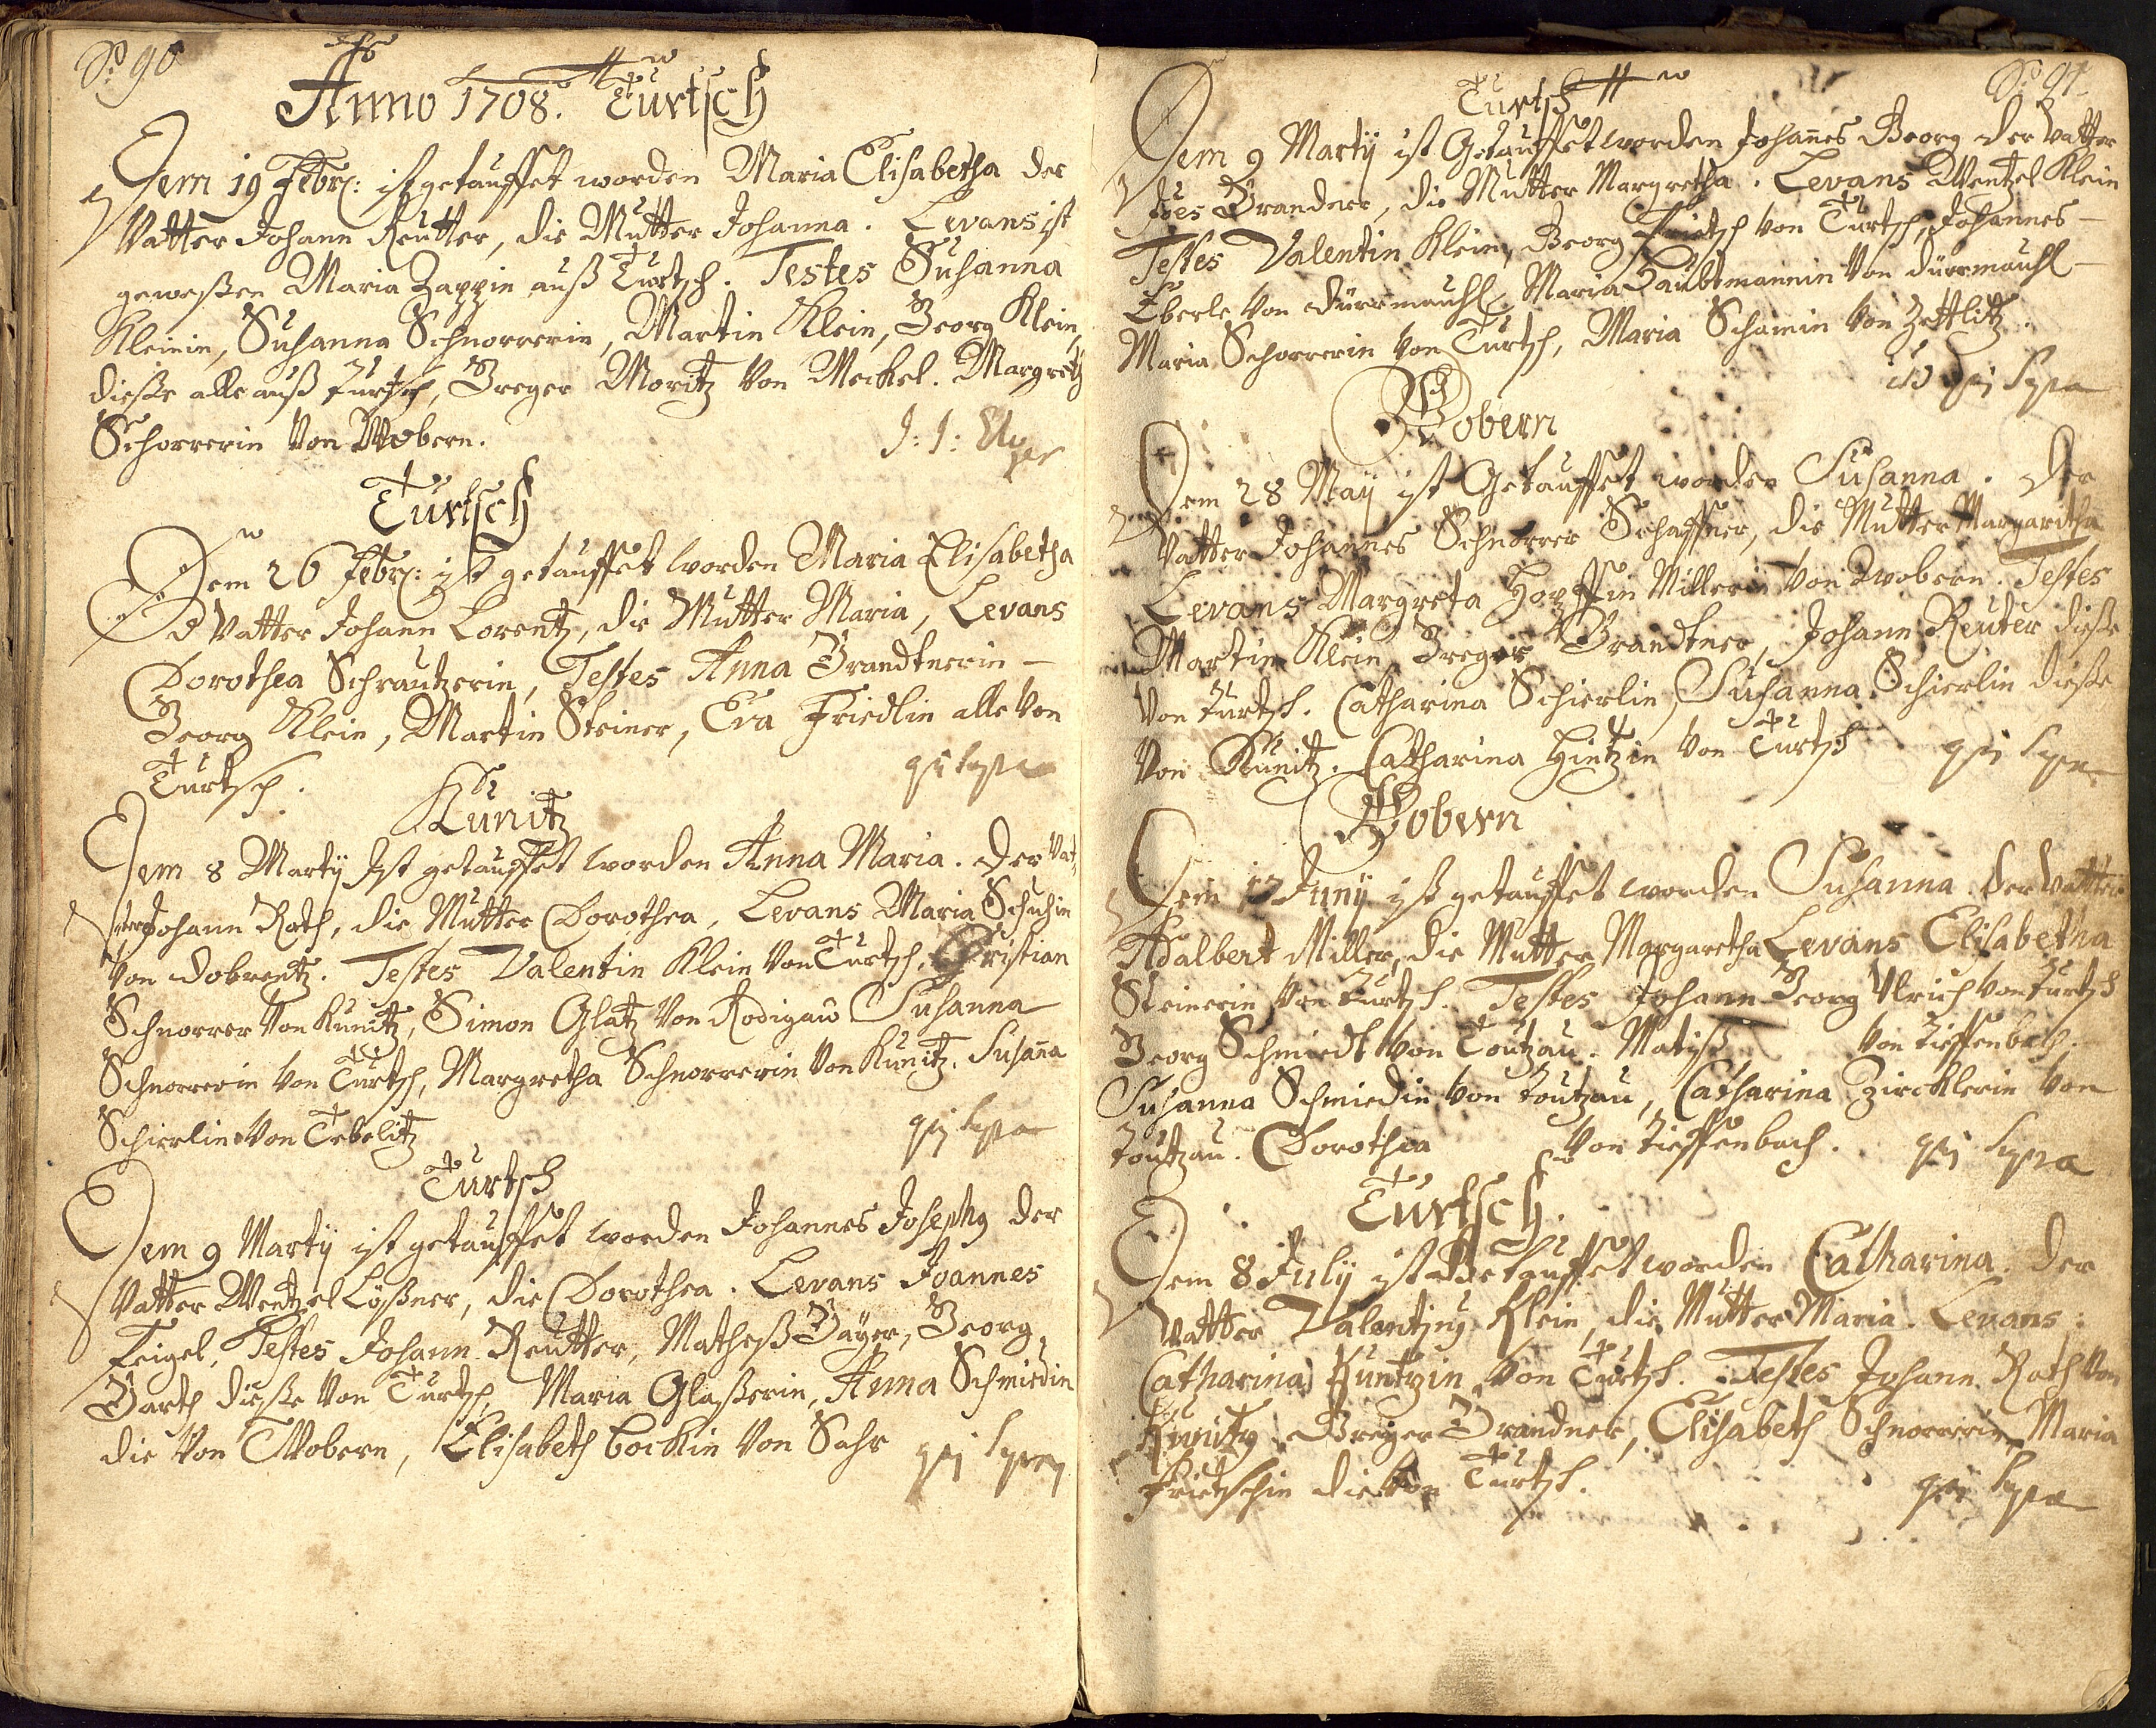 No 90
Anno 1708. Turtsch
Dem 19 Febr: ist getauffet worden Maria Elisabetha der
Vatter Johann Reutter, die Mutter Johanna. Levans ist
geweßen Maria Zappin auß Turtsch. Testes Susanna
Kleinin, Susanna Schnorrerin, Martin Klein, Georg Klein,
dieße alle auß Turtsch, Greger Moritz von Meckel. Margreth
Schorrerin von Wobern.
Turtsch
Dem 26 Febr: ist getauffet worden Maria Elisabetha
d Vatter Johann Lorentz, die Mutter Maria, Levans
Dorothea Schrautzerin, Testes Anna Brandtnerin
Georg Klein, Martin Steiner, Eva Friedlin alle von
Turtsch. qui supra
Kunitz
Dem 8 Martÿ Ist getauffet worden Anna Maria. der Vat-
ter Johann Rath, die Mutter Dorothea, Levans Maria Schuhin
von Dobrentz. Testes Valentin Klein von Turtsch, Christian
Schnorrer von Kunitz, Simon Glatz von Rodigau Susanna
Schnorrerin von Turtsch, Margretha Schnorrerin von Kunitz. Susana
Schierlin von Tebelitz qui supra
Turtsch
Dem 9 Martÿ ist getauffet worden Johannes Josephg der
Vatter Wentzel Lößner, die Dorothea. Levans Joannes
Feigel, Testes Johann Reutter, Matheß Bayer, Georg
Barth dieße von Turtsch, Maria Glaßerin, Anna Schmiedin
die von Wobern, Elisabeth Bocklin von Sahr qui supra
No 91
Turtsch
Dem 9 Martÿ ist Getauffet worden Johannes Georg der Vatter
Joes Brandner, die Mutter Margretha. Levans Wentzel Klein
Testes Valentin Klein, Georg Fritsch von Turtsch, Johannes
Eberle von Dürrmauhl, Maria Haubtmannin von Dürrmauhl
Maria Schorrerin von Turtsch, Maria Schamin von Zettlitz.
qui supra
Wobern
Dem 28 Maÿ ist Getauffet worden Susanna. der
Vatter Johannes Schnorrer Schaffner, die Mutter Margaretha
Levans Margreta Hopffin Millerin von Wobern. Testes
Martin Klein, Greger Brandtner, Johann Reuter dieße
von Turtsch. Catharina Schierlin, Susanna Schierlin dieße
von Kunitz. Catharina Hintzin von Turtsch qui supra
Wobern
Dem 17 Junÿ ist getauffet worden Susanna. der Vatter
Adalbert Miller, die Mutter Margaretha Levans Elisabetha
Steinerin von Turtsch. Testes Johann Georg Ulrich von Turtsch
Georg Schmiedt von Toutzau. Matiß von Tieffenbach.
Susanna Schmiedin von Toutzau, Catharina Zircklerin von
Toutzau. Dorothea von Tieffenbach. qui supra
Turtsch.
Dem 8 Julÿ ist Getauffet worden Catharina. der
Vatter Valentin Klein, die Mutter Maria. Levans:
Catharina Kuntzin von Turtsch. Testes Johann Rath von
Kunitz Greger Brandner, Elisabeth Schnorrerin Maria
Fritschin die von Turtsch. qui supra